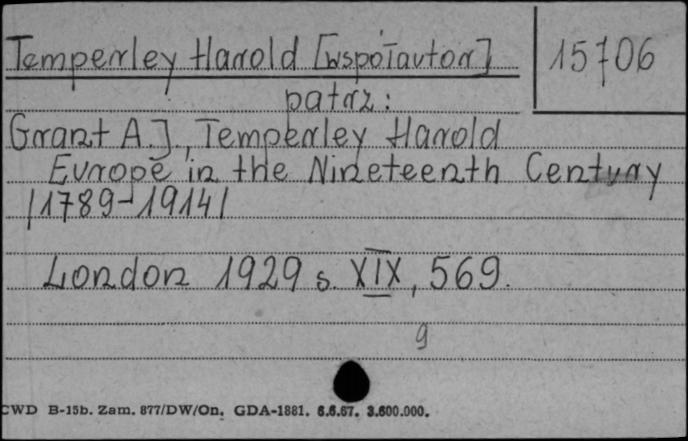 Temperley Harold [współautor]
15706
patrz:
Grant A.J., Temperley Harold
Europe in the Nineteenth Century
/1789-1914/
London 1929 s. XIX, 569.
9
CWD B-15b. Zam. 877/DW/On. GDA-1881. 6.6.67. 3.600.000.